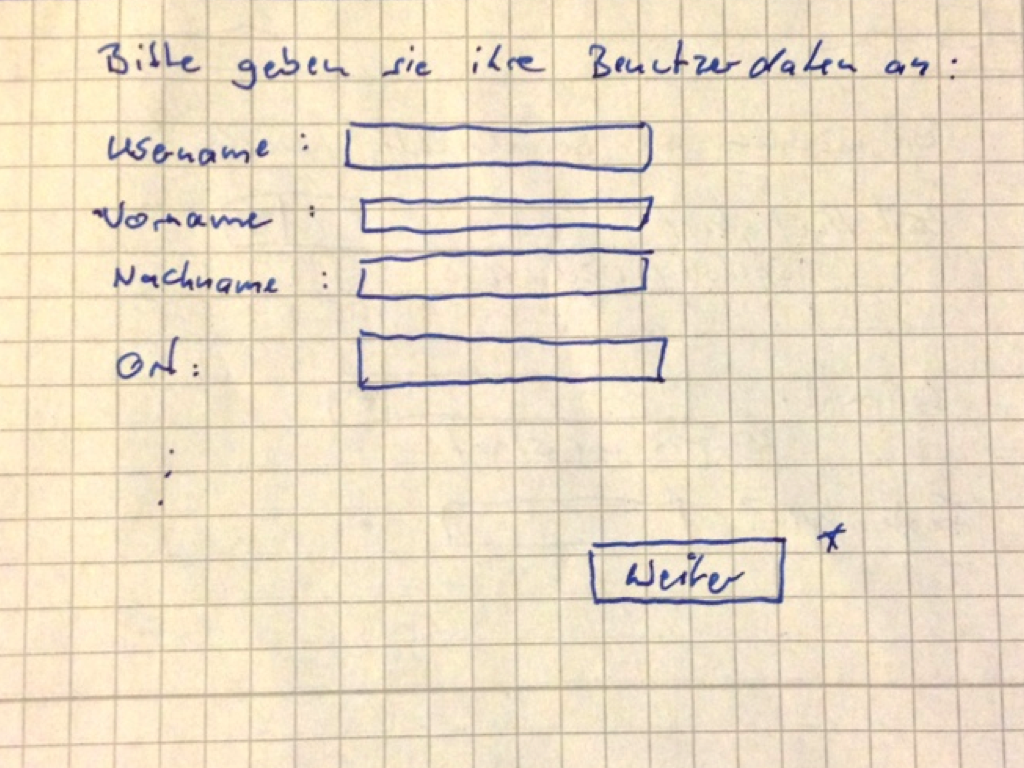 Bitte geben sie ihre Benutzerdaten an:
Username :
Vorname :
Nachname :
Ort:
⋮
Weiter *